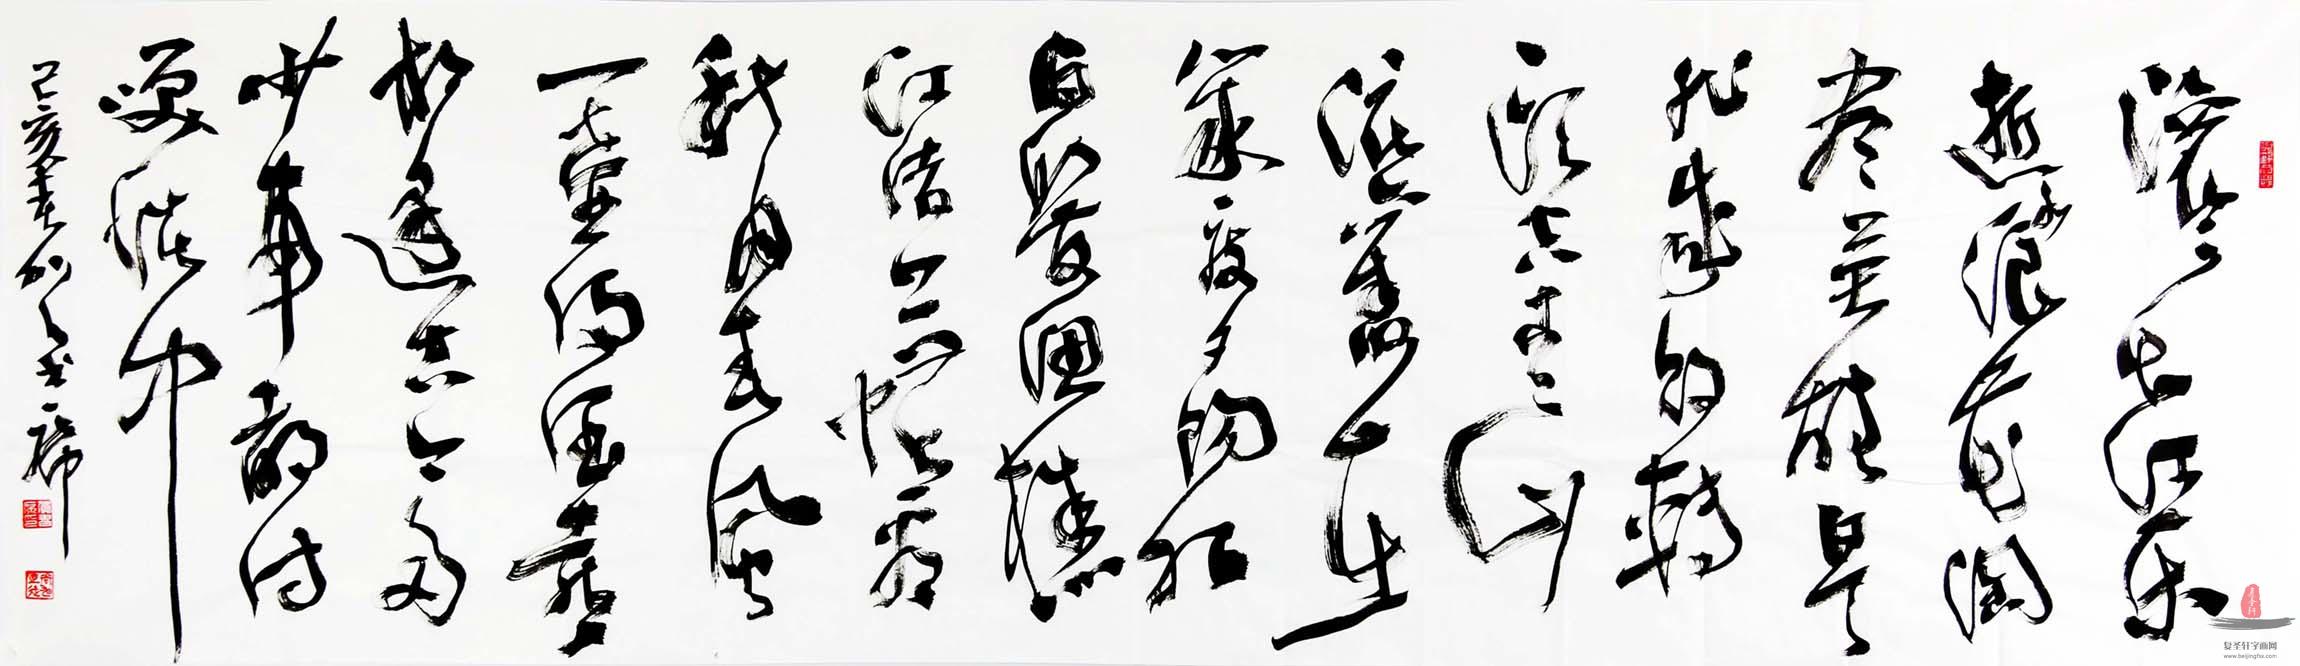 滚滚长江东
逝水浪花淘
尽英雄是
非成败转
头空青山
依旧在
几度夕阳红
白发渔樵
江渚上惯看
秋月春风
一壶浊酒喜
相逢古今多
少事都付
笑谈中
己亥春
复圣轩字画网
www.beijingfsx.com